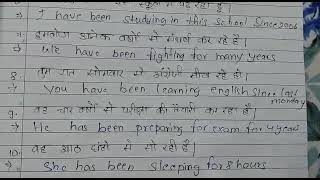 में पढ़ रहा हूँ।
→ I have been studying in this school since 2006
हमलोग अनेक वर्षों से संघर्ष कर रहे हैं।
→ We have been fighting for many years
8. तुम गत सोमवार से अंग्रेजी सीख रहे हो।
→ You have been learning English since last monday
9. वह चार वर्षों से परीक्षा की तैयारी कर रहा है।
→ He has been preparing for exam for 4 years
10. वह आठ घंटों से सो रही है।
→ She has been sleeping for 8 hours